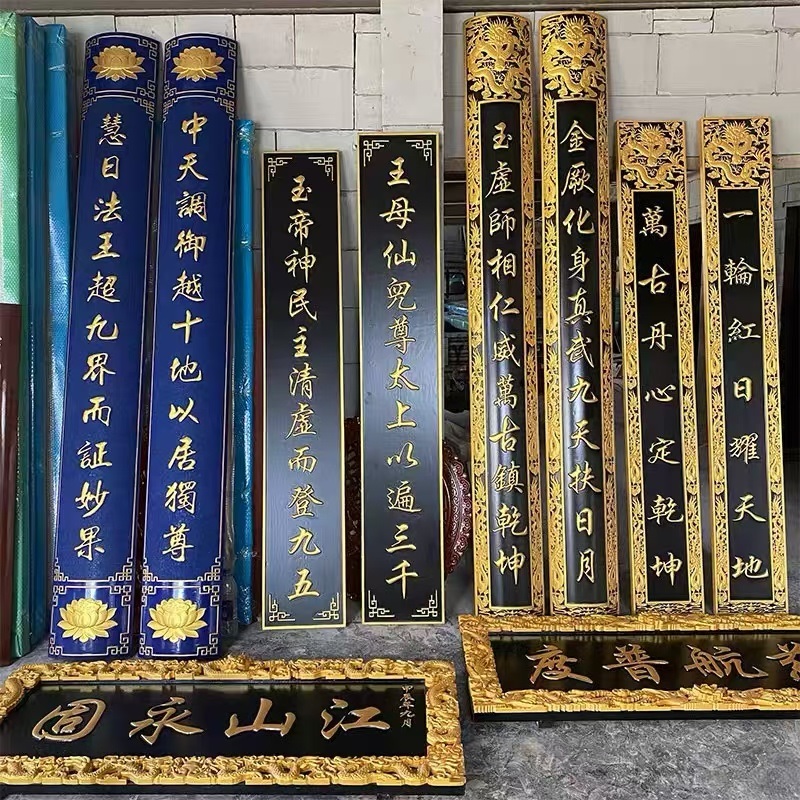 一輪紅日耀天地
萬古丹心定乾坤
金厥化身真武九天扶日月
玉虛師相仁威萬古鎮乾坤
王母仙兒尊太上以遍三千
玉帝神民主清虛而登九五
中天調御越十地以居獨尊
慧日法王超九界而証妙果
航普度
江山永固